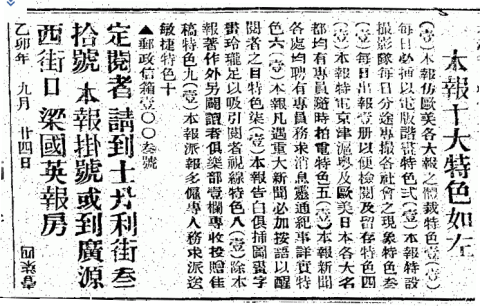 本報十大特色如左
(壹)本報仿歐美各大報之體裁特色壹(壹)
每日必插以電版諧畫特色弍(壹)本報特設
撮影隊每日分途專攝各社會之現象特色叁
(壹)每日出報壹册以便檢閱及留存特色四
(壹)本報特電京津滬粤及歐美日本各大名
都均有專員隨時拍電特色五(壹)本報新聞
各處均聘有專員務求消息靈通紀事詳實特
色六(壹)本報凡遇重大新聞必加按語以醒
閱者之目特色柒(壹)本報告白俱插圖畫字
畫玲瓏足以吸引閱者視線特色八(壹)除本
報著作外另闢讀者俱樂部壹欄專收投贈佳
稿特色九(壹)本報派報多僱專人務求派送
敏捷特色十
▲郵政信箱壹○○叁號
定閱者請到士丹利街叁
拾號本報掛號或到廣源
西街口梁國英報房
乙卯年 九月 廿四日